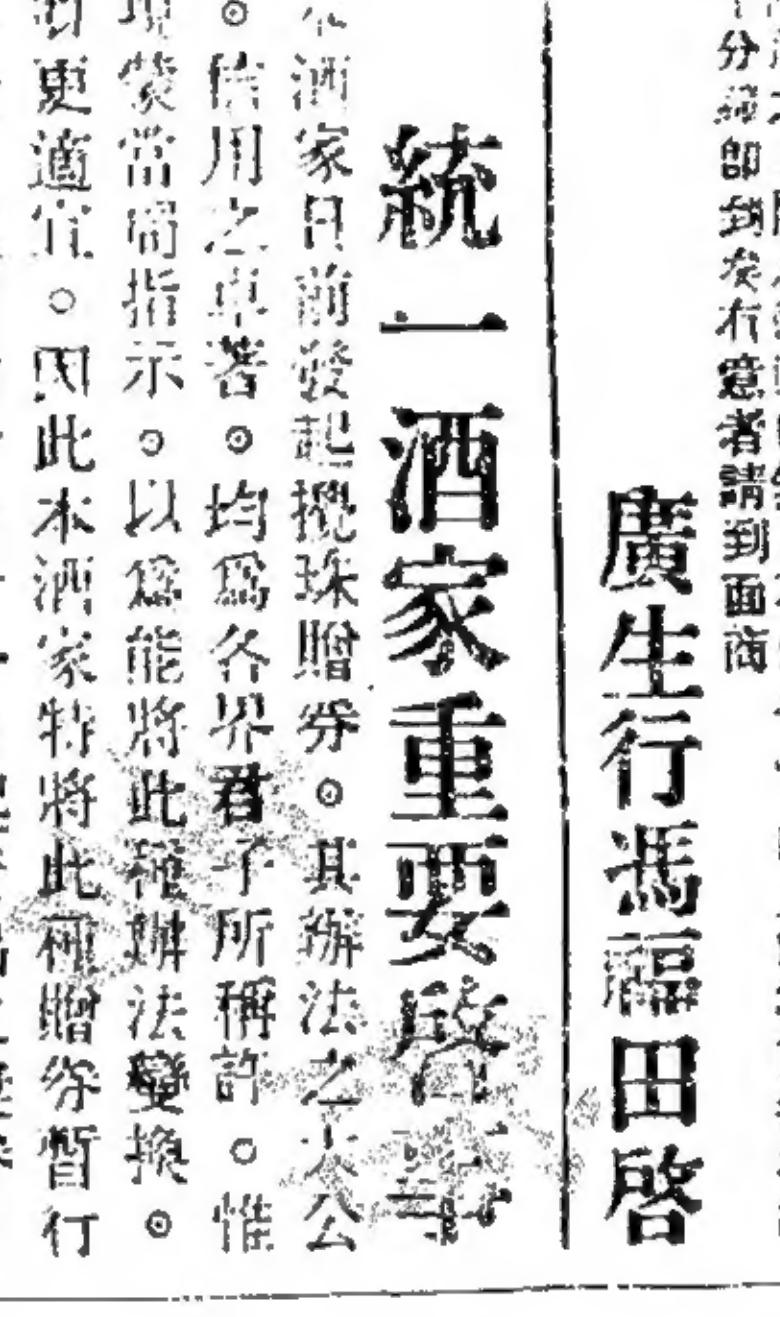 分綫即到矣有意者請到面商
廣生行馮福田啓
統一酒家重要啓事
酒家日前發起攪珠贈券。其辦法之大公
。信用之卓著。均爲各界君子所稱許。惟
現蒙當局指示。以爲能將此種辦法變換。
更適宜。因此本酒家特將此種贈券暫行